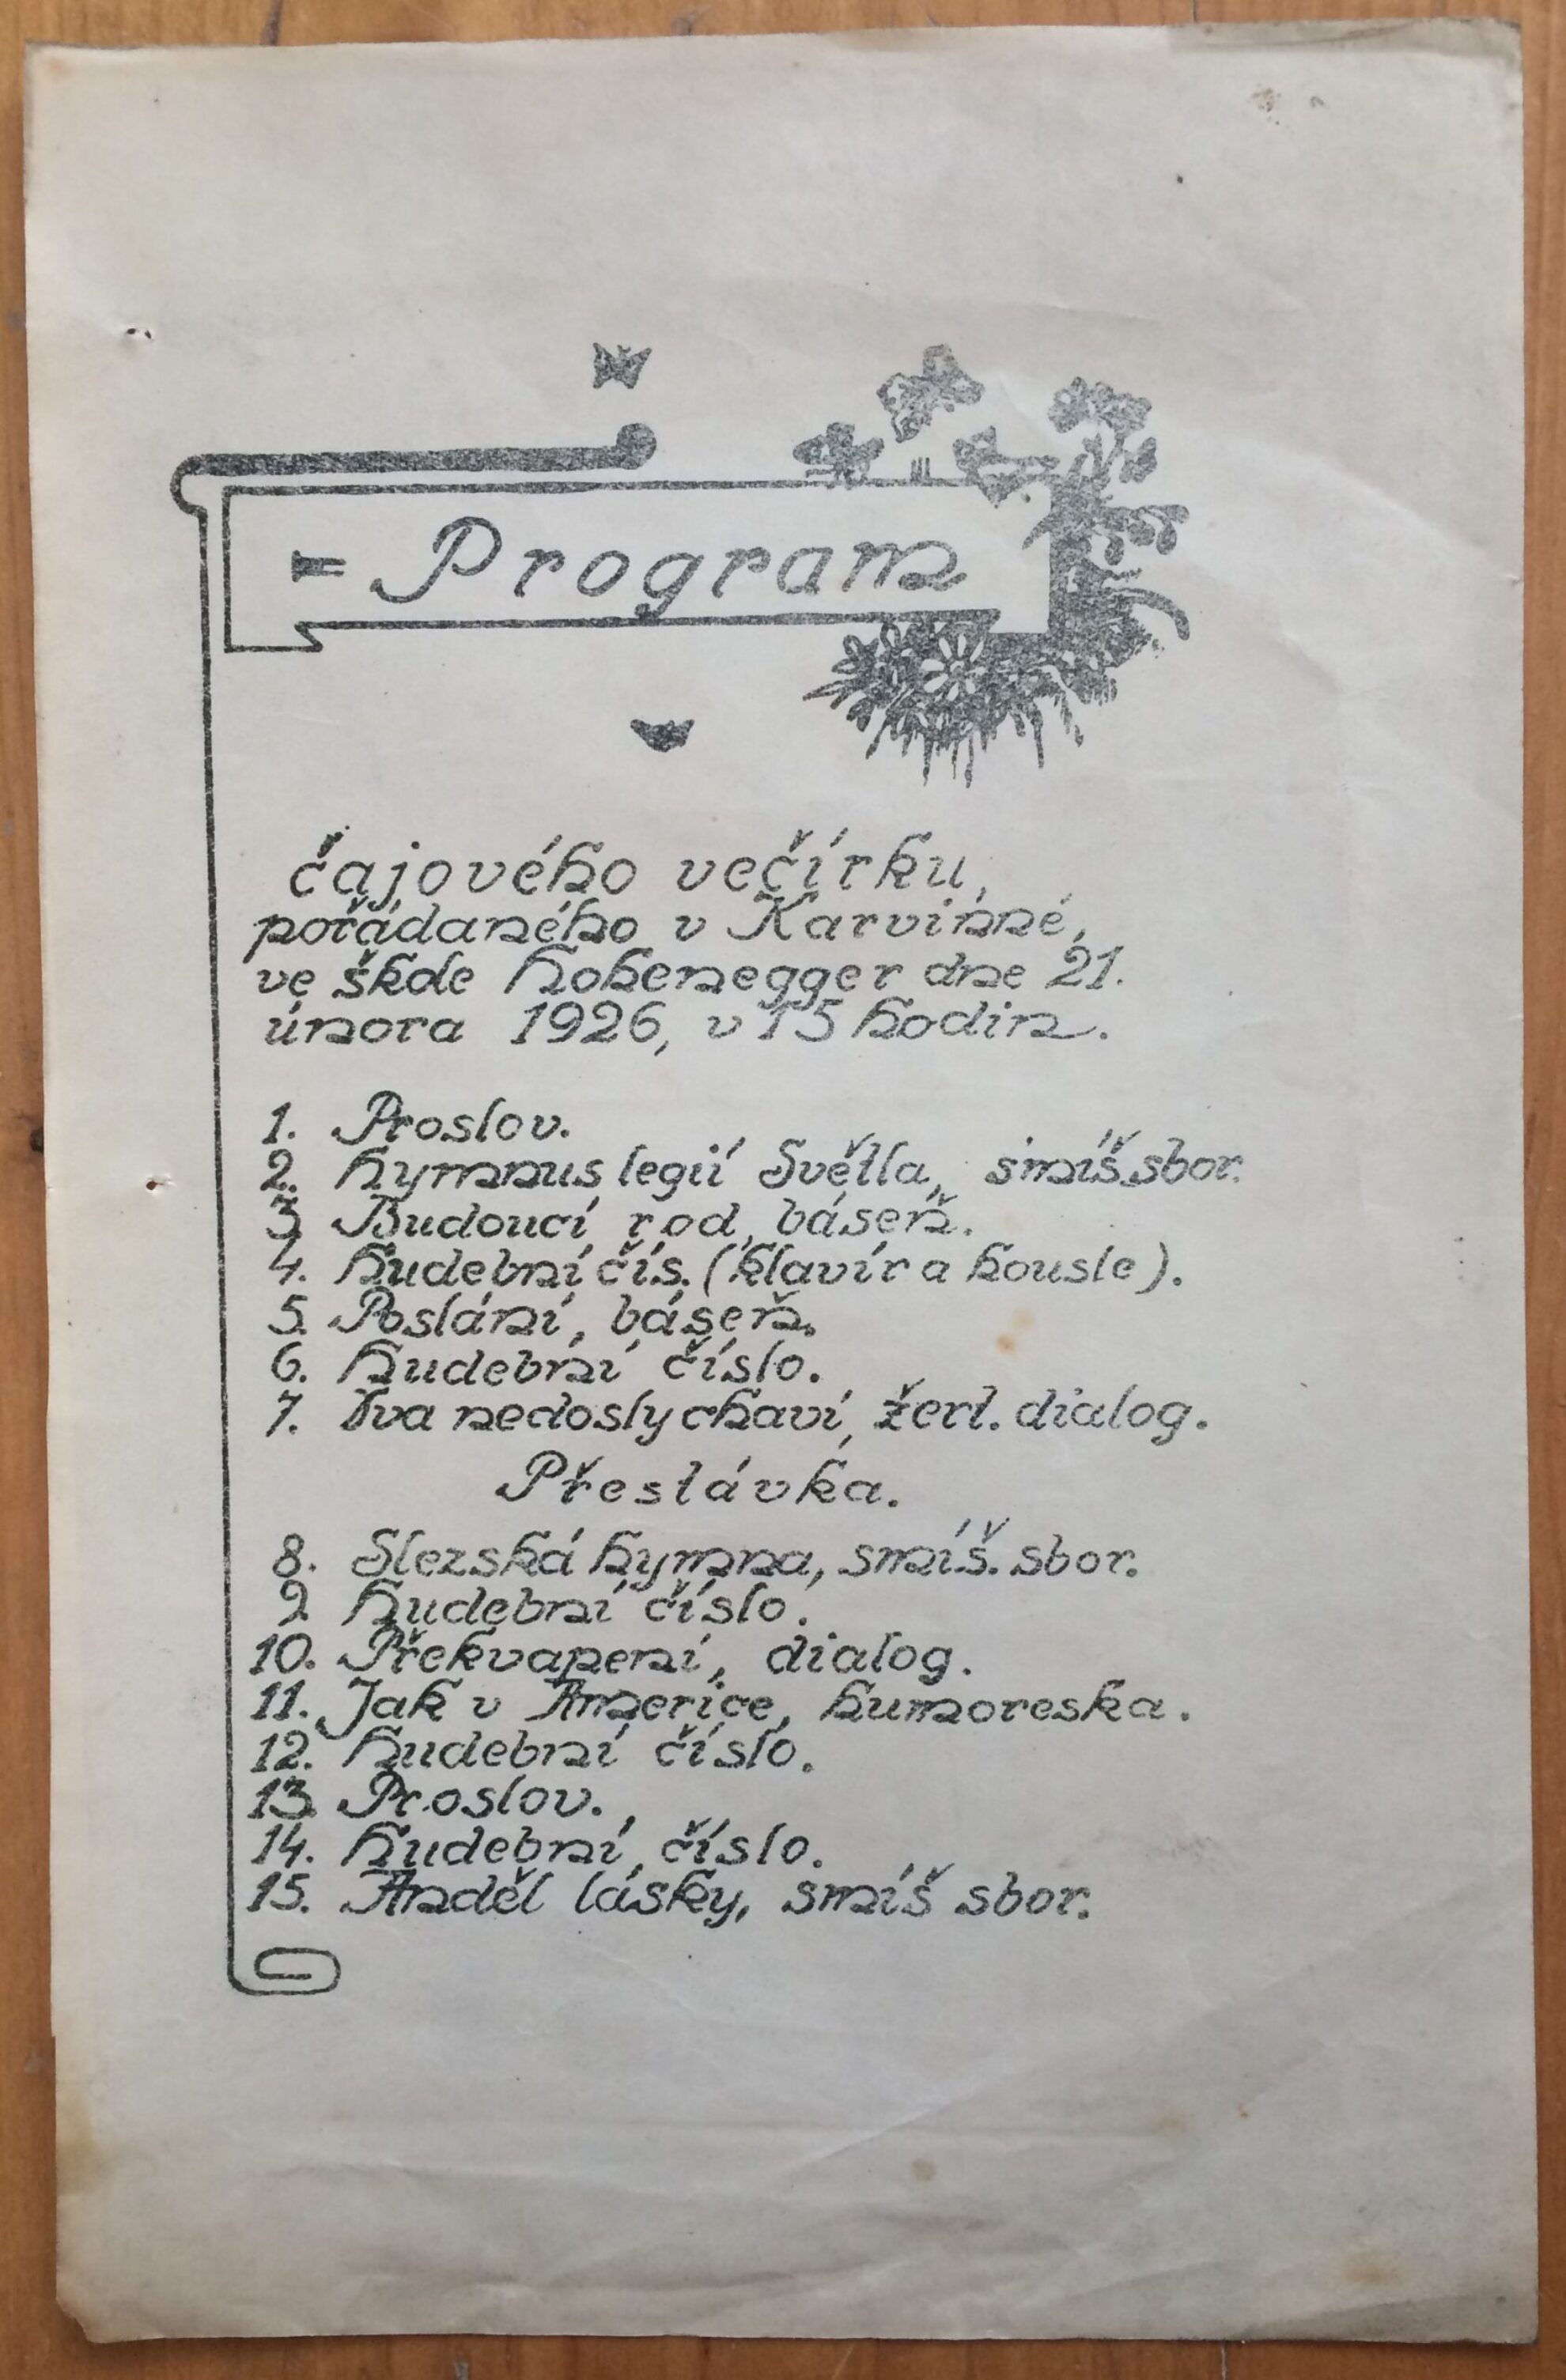 = Program
čajového večírku,
pořádaného v Karvinné,
ve škole Hohenegger dne 21.
února 1926, v 15 hodin.
1. Proslov.
2. Hymnus legií Světla, smíš.sbor.
3 Budoucí rod, báseň.
4. Hudební čís. (klavír a housle).
5. Poslání, báseň.
6. Hudební číslo.
7. Dva nedoslychaví, žert. dialog.
Přestávka.
8. Slezská hymna, smíš. sbor.
9 Hudební číslo.
10. Překvapení, dialog.
11. Jak v Americe, humoreska.
12. Hudební číslo.
13. Proslov.
14. Hudební číslo.
15. Anděl lásky, smíš sbor.